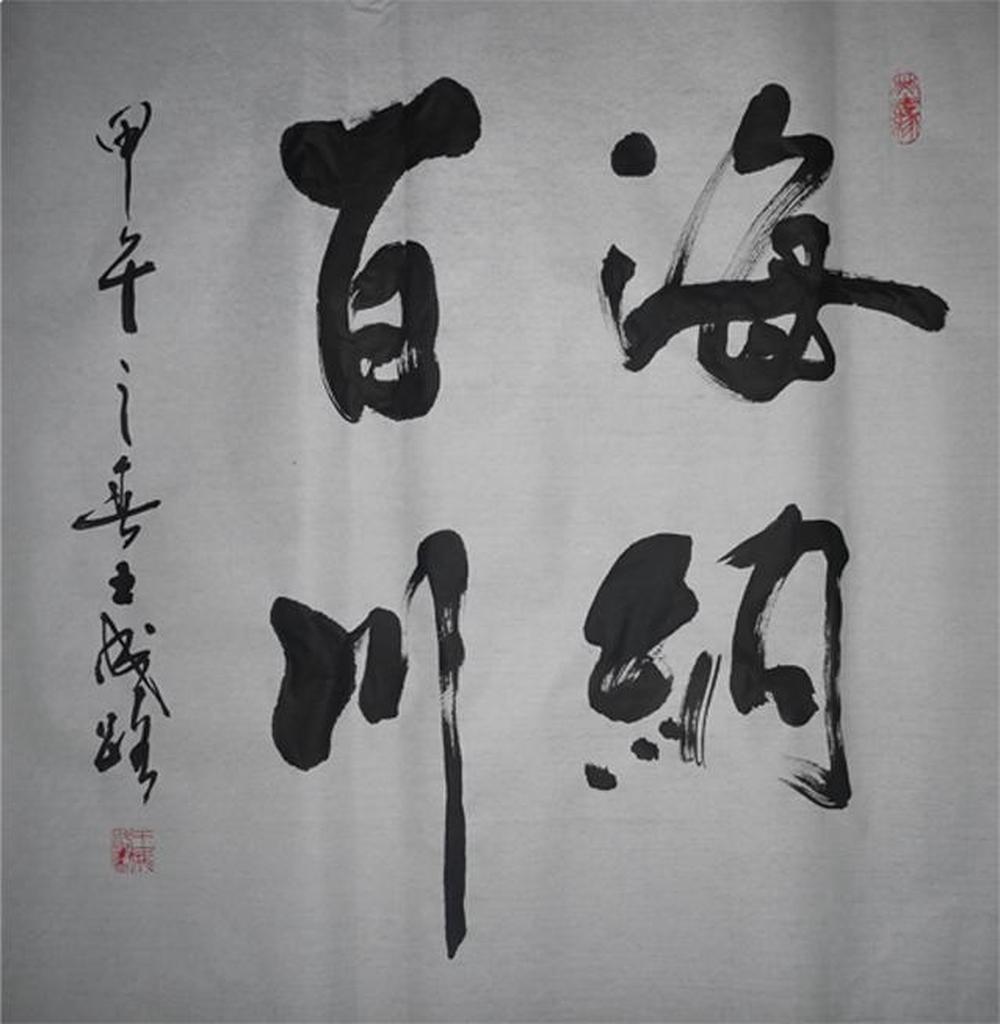 海納
百川
甲午之春王成路